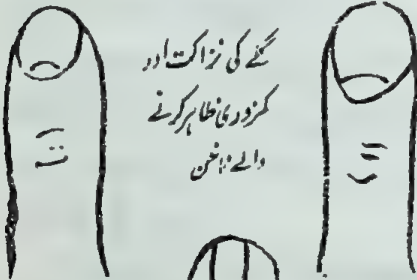 گلے کی نزاکت اور
کمزوری ظاہر کرنے
والے ناخن